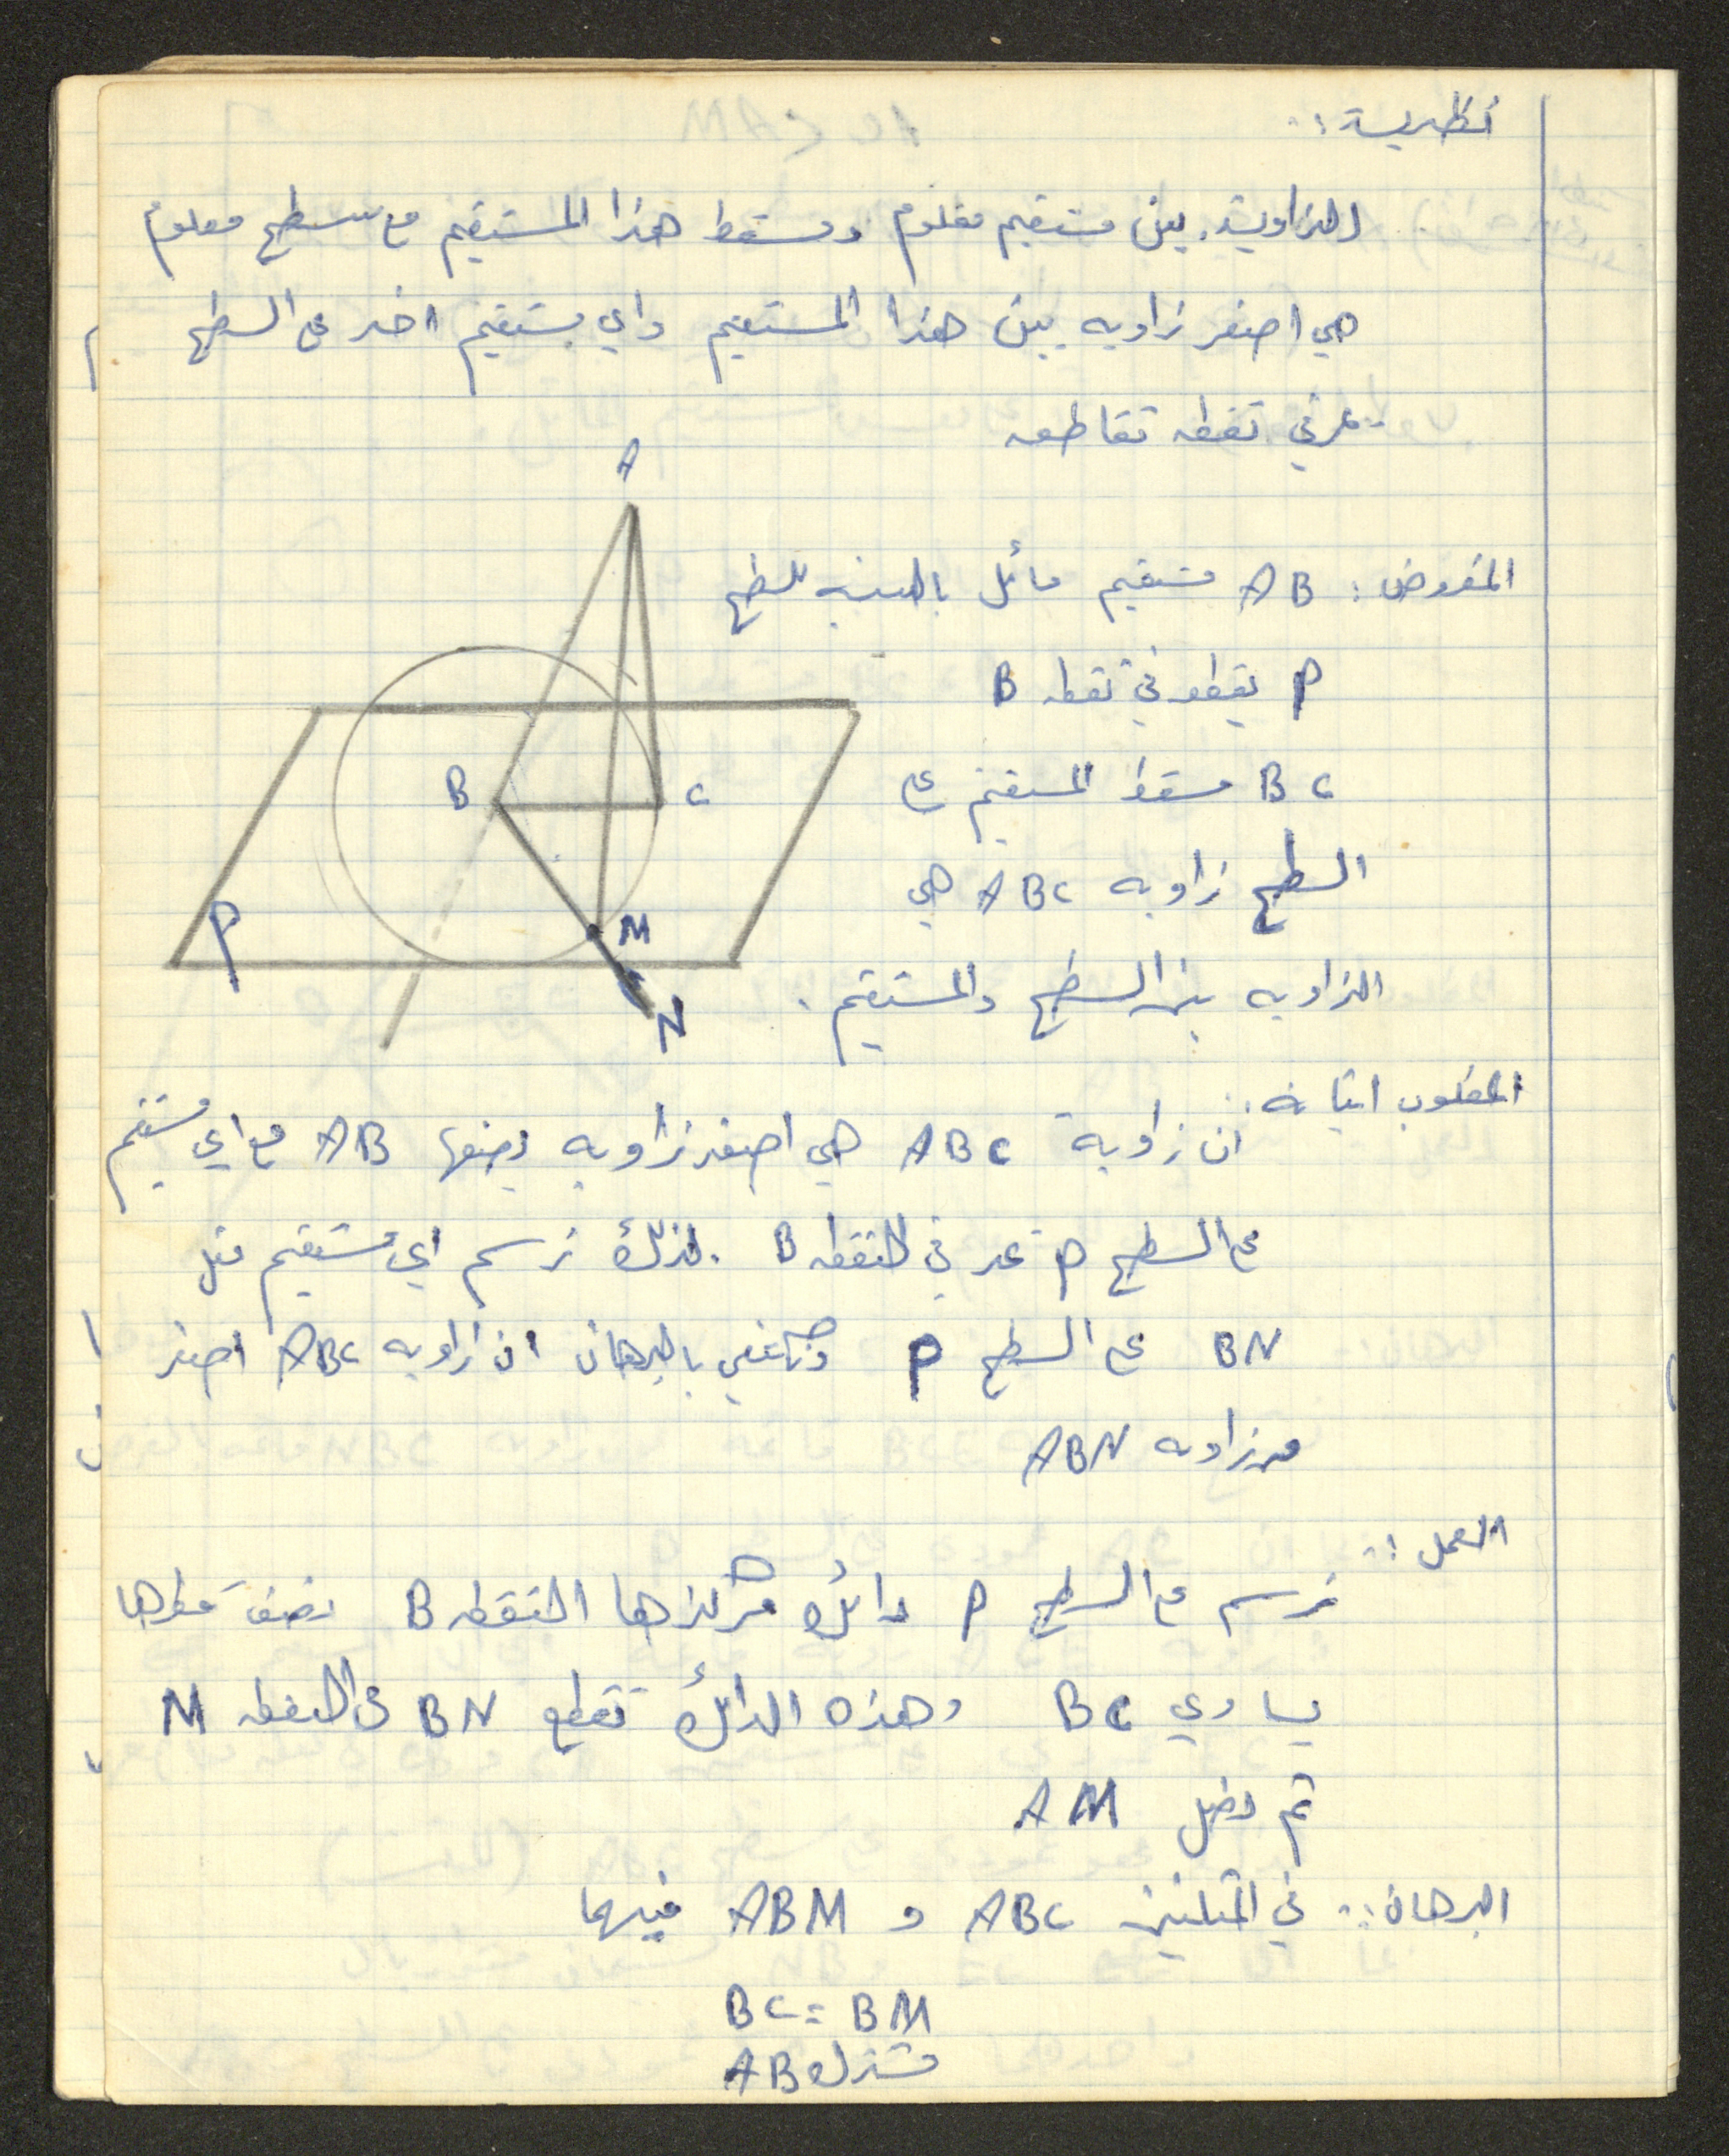 نظرية :.
الزاوية بين مستقيم معلوم ومسقط هذا المستقيم مع سطح معلوم
هي اصغر زاويه بين هذا المستقيم واي مستقيم اخر على السطح
يمر في نقطه تقاطعه
A
المفروض : AB مستقيم مائل بالنسبه للسطح
P يقطعه في نقطه B
BC مسقط المستقيم على
السطح زاويه ABC هي
الزاويه بين السطح والمستقيم .
B
C
M
P
N
المطلوب اثباته :
ان زاوية ABC هي اصغر زاويه يصنعها AB مع اي مستقيم
على السطح P يمر في النقطه B . لذلك نرسم اي مستقيم مثل
BN على السطح P بالبرهان ان زاويه ABC اصغر
من زاويه ABN
العمل :.
نرسم على السطح P دائره مركزها النقطه B ونصف قطرها
يساوي BC وهذه الدائرة تقطع BN في النقطه M
ثم نصل AM
البرهان :. في المثلثين ABC و ABM فيهما
BC = BM
AB مشترك